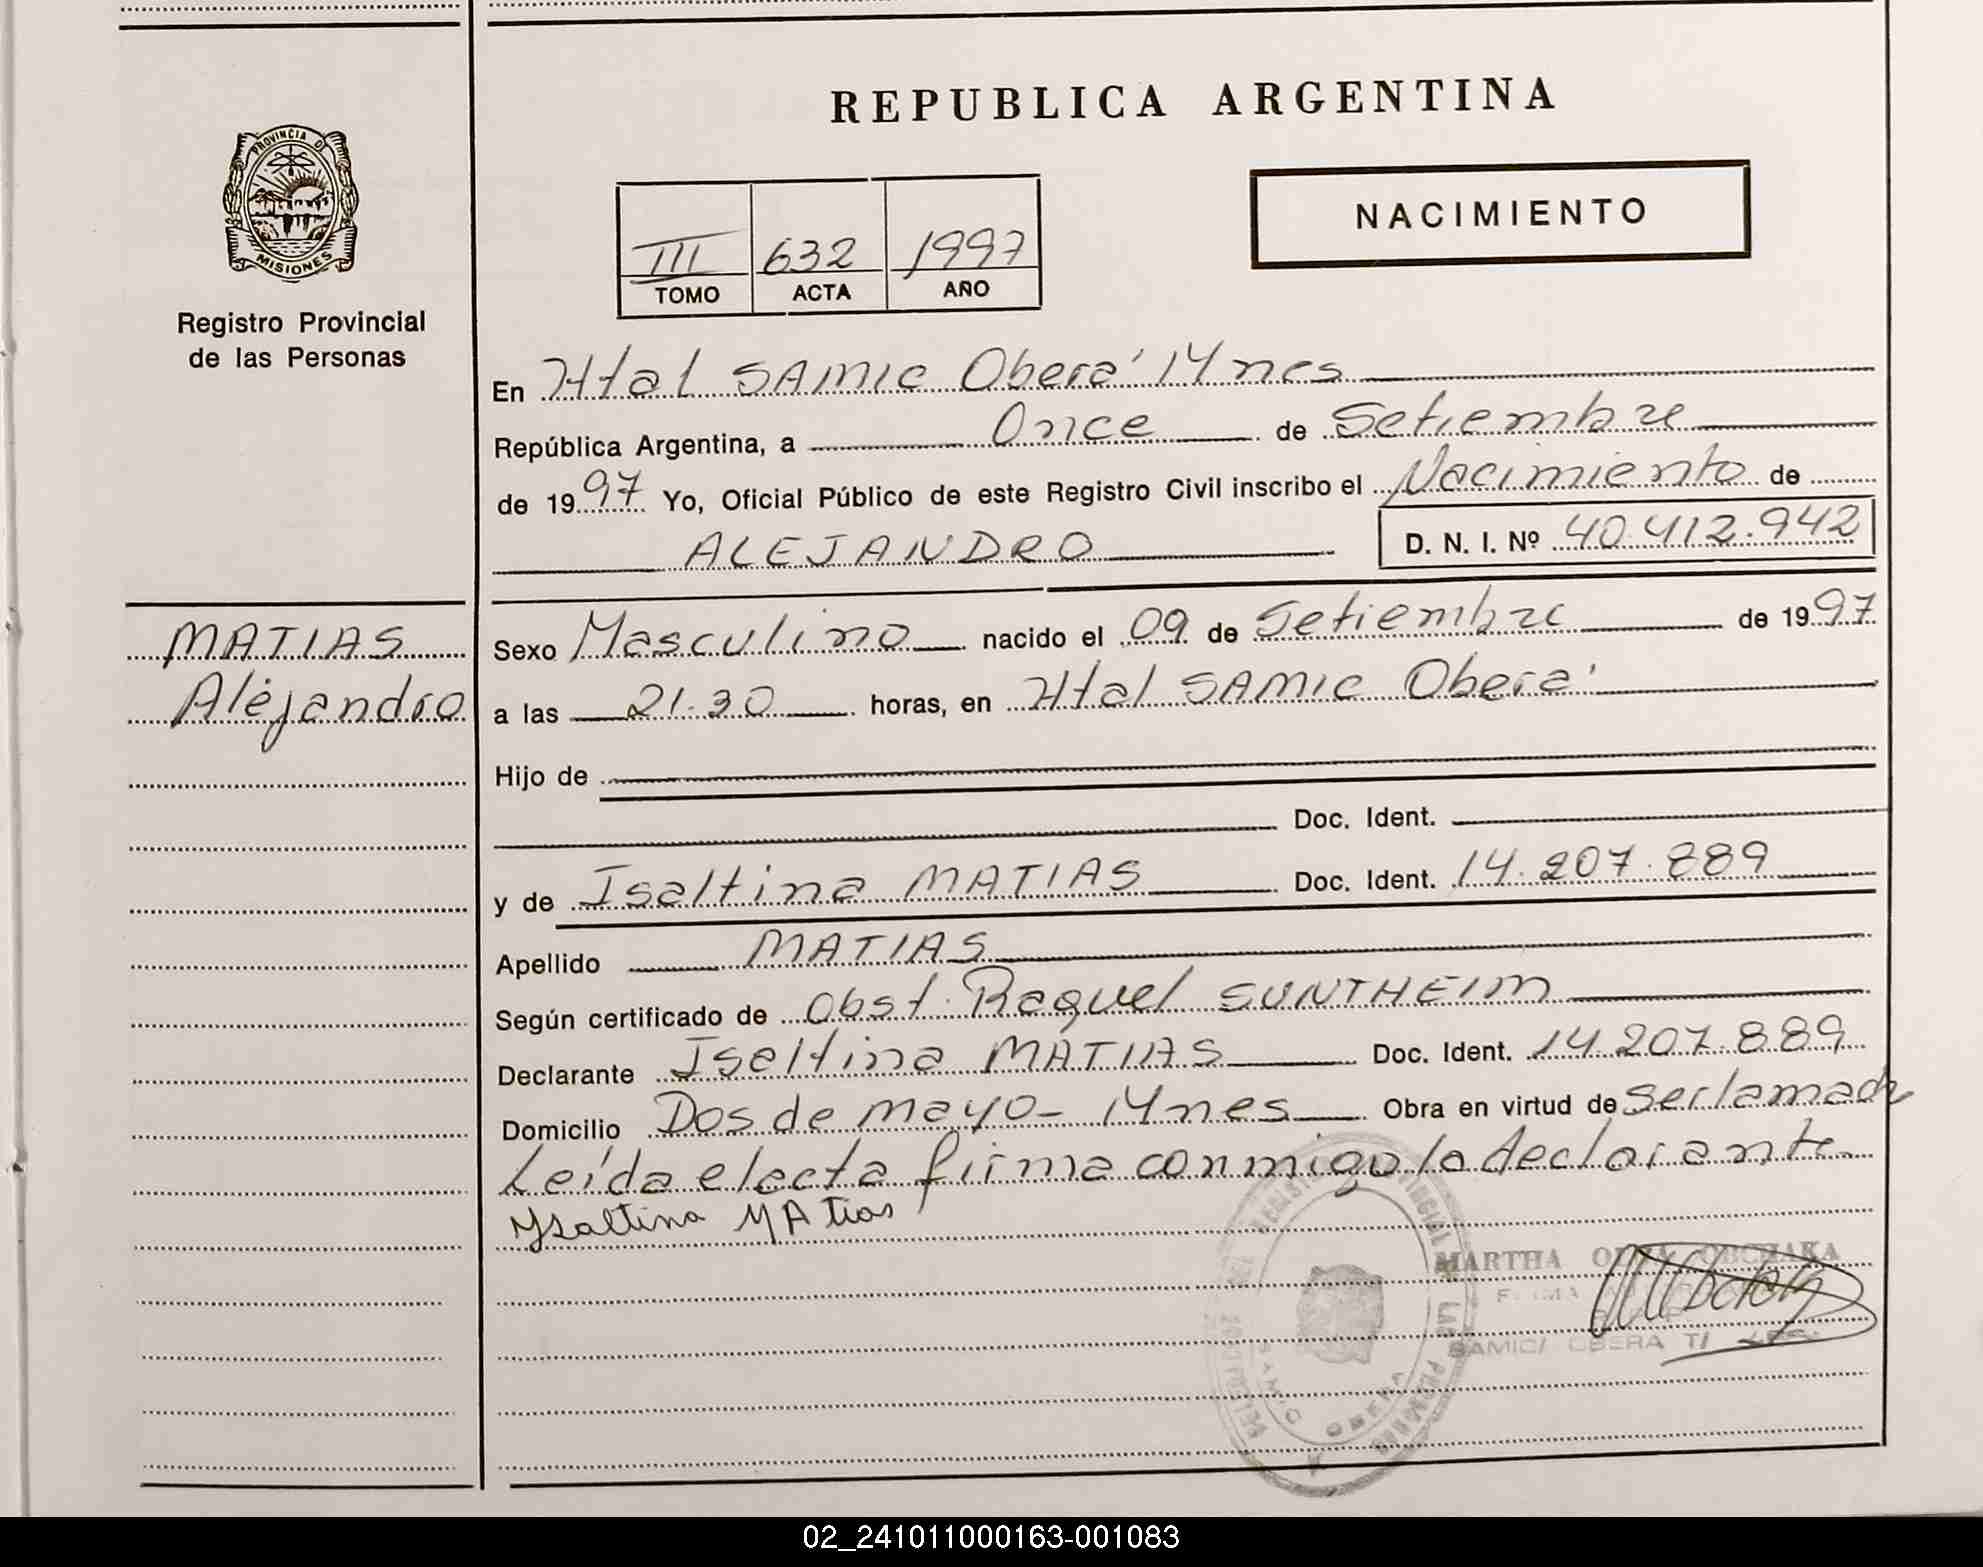 REPUBLICA ARGENTINA
PROVINCIA D
MISIONES
Registro Provincial
de las Personas
NACIMIENTO
III 632 1997
TOMO ACTA AÑO
En Htal SAMIC Oberá Mnes
República Argentina, a Once de Setiembre
de 1997 Yo, Oficial Público de este Registro Civil inscribo el Nacimiento de
ALEJANDRO D. N. I. Nº 40.412.942
MATIAS
Alejandro
Sexo Masculino nacido el 09 de Setiembre de 1997
a las 21.30 horas, en Htal SAMIC Oberá
Hijo de
Doc. Ident.
y de Isaltina MATIAS Doc. Ident. 14.207.889
Apellido MATIAS
Según certificado de Obst. Raquel SUNTHEIM
Declarante Isaltina MATIAS Doc. Ident. 14.207.889
Domicilio Dos de Mayo - Mnes Obra en virtud de ser la madre
Leída el acta firma conmigo la declarante.
Ysaltina MAtias
MARTHA OBCHAKA
SAMIC/ OBERA
SAMIC OBERA
02_241011000163-001083